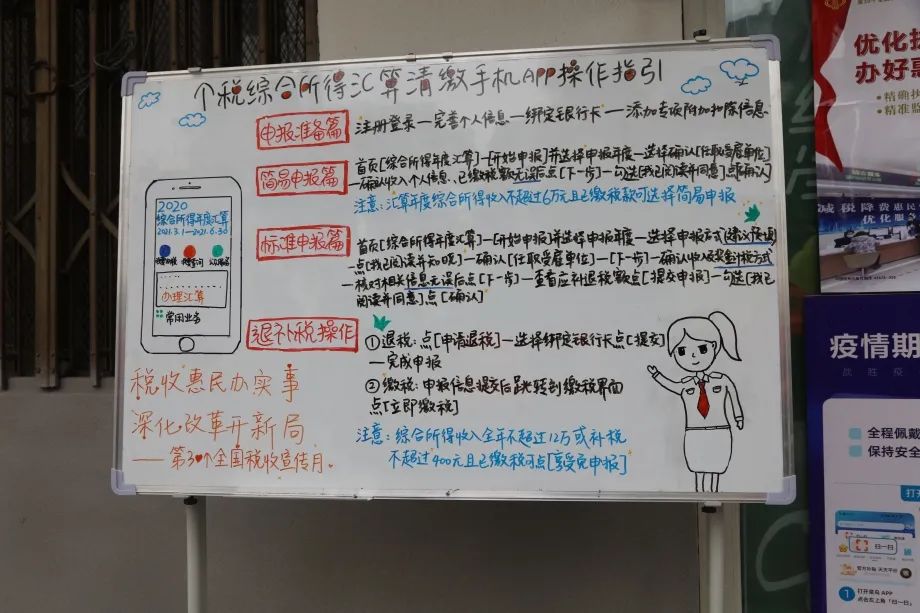 个税综合所得汇算清缴手机APP操作指引
申报准备篇
注册登录—完善个人信息—绑定银行卡—添加专项附加扣除信息
简易申报篇
首页[综合所得年度汇算]—[开始申报]并选择申报年度—选择确认[任职受雇单位]
—确认收入个人信息、已缴税款无误后点[下一步]—勾选[我已阅读并同意]点[确认]
注意:汇算年度综合所得收入不超过6万元且已缴税款可选择简易申报
标准申报篇
首页[综合所得年度汇算]—[开始申报]并选择申报年度—选择申报方式
点[我已阅读并知晓]—确认[任职受雇单位]—[下一步]—确认收入及奖金计税方式
—核对相关信息无误后点[下一步]—查看应补退税款点[提交申报]—勾选[我已
阅读并同意]点[确认]
退补税操作
①退税:点[申请退税]—选择绑定银行卡点[提交]
—完成申报
②缴税:申报信息提交后跳转到缴税界面
点[立即缴税]
注意:综合所得收入全年不超过12万或补税
不超过400元且已缴税可点[享受免申报]
2020
综合所得年度汇算
2021.3.1—2021.6.30
办理汇算
常用业务
税收惠民办实事
深化改革开新局
——第30个全国税收宣传月.
优化
办好
精确执
精准监
减税降费惠民
优化服
疫情期
战胜疫
全程佩戴
保持安全
打开
扫一扫
1 打开菜鸟APP
点击右上角「扫一扫」